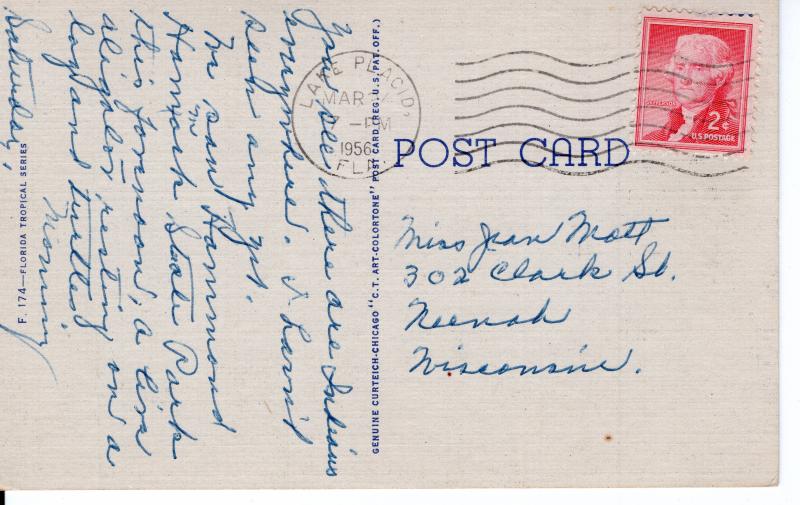 You see there are Indians
everywhere. I haven't
seen any yet.
We saw Hammond
in
Hamock State Park
this forenoon, a live
aligator resting on a
log and turtles
Saturday, Mommy
F. 174—FLORIDA TROPICAL SERIES
GENUINE CURTEICH-CHICAGO "C.T. ART-COLORTONE" POST CARD (REG. U.S. PAT. OFF.)
LAKE PLACID,
MAR
-PM
1956
FLA
JEFFERSON
2¢
U.S. POSTAGE
POST CARD
Miss Jean Mott
302 Clark St.
Neenah
Wisconsin.